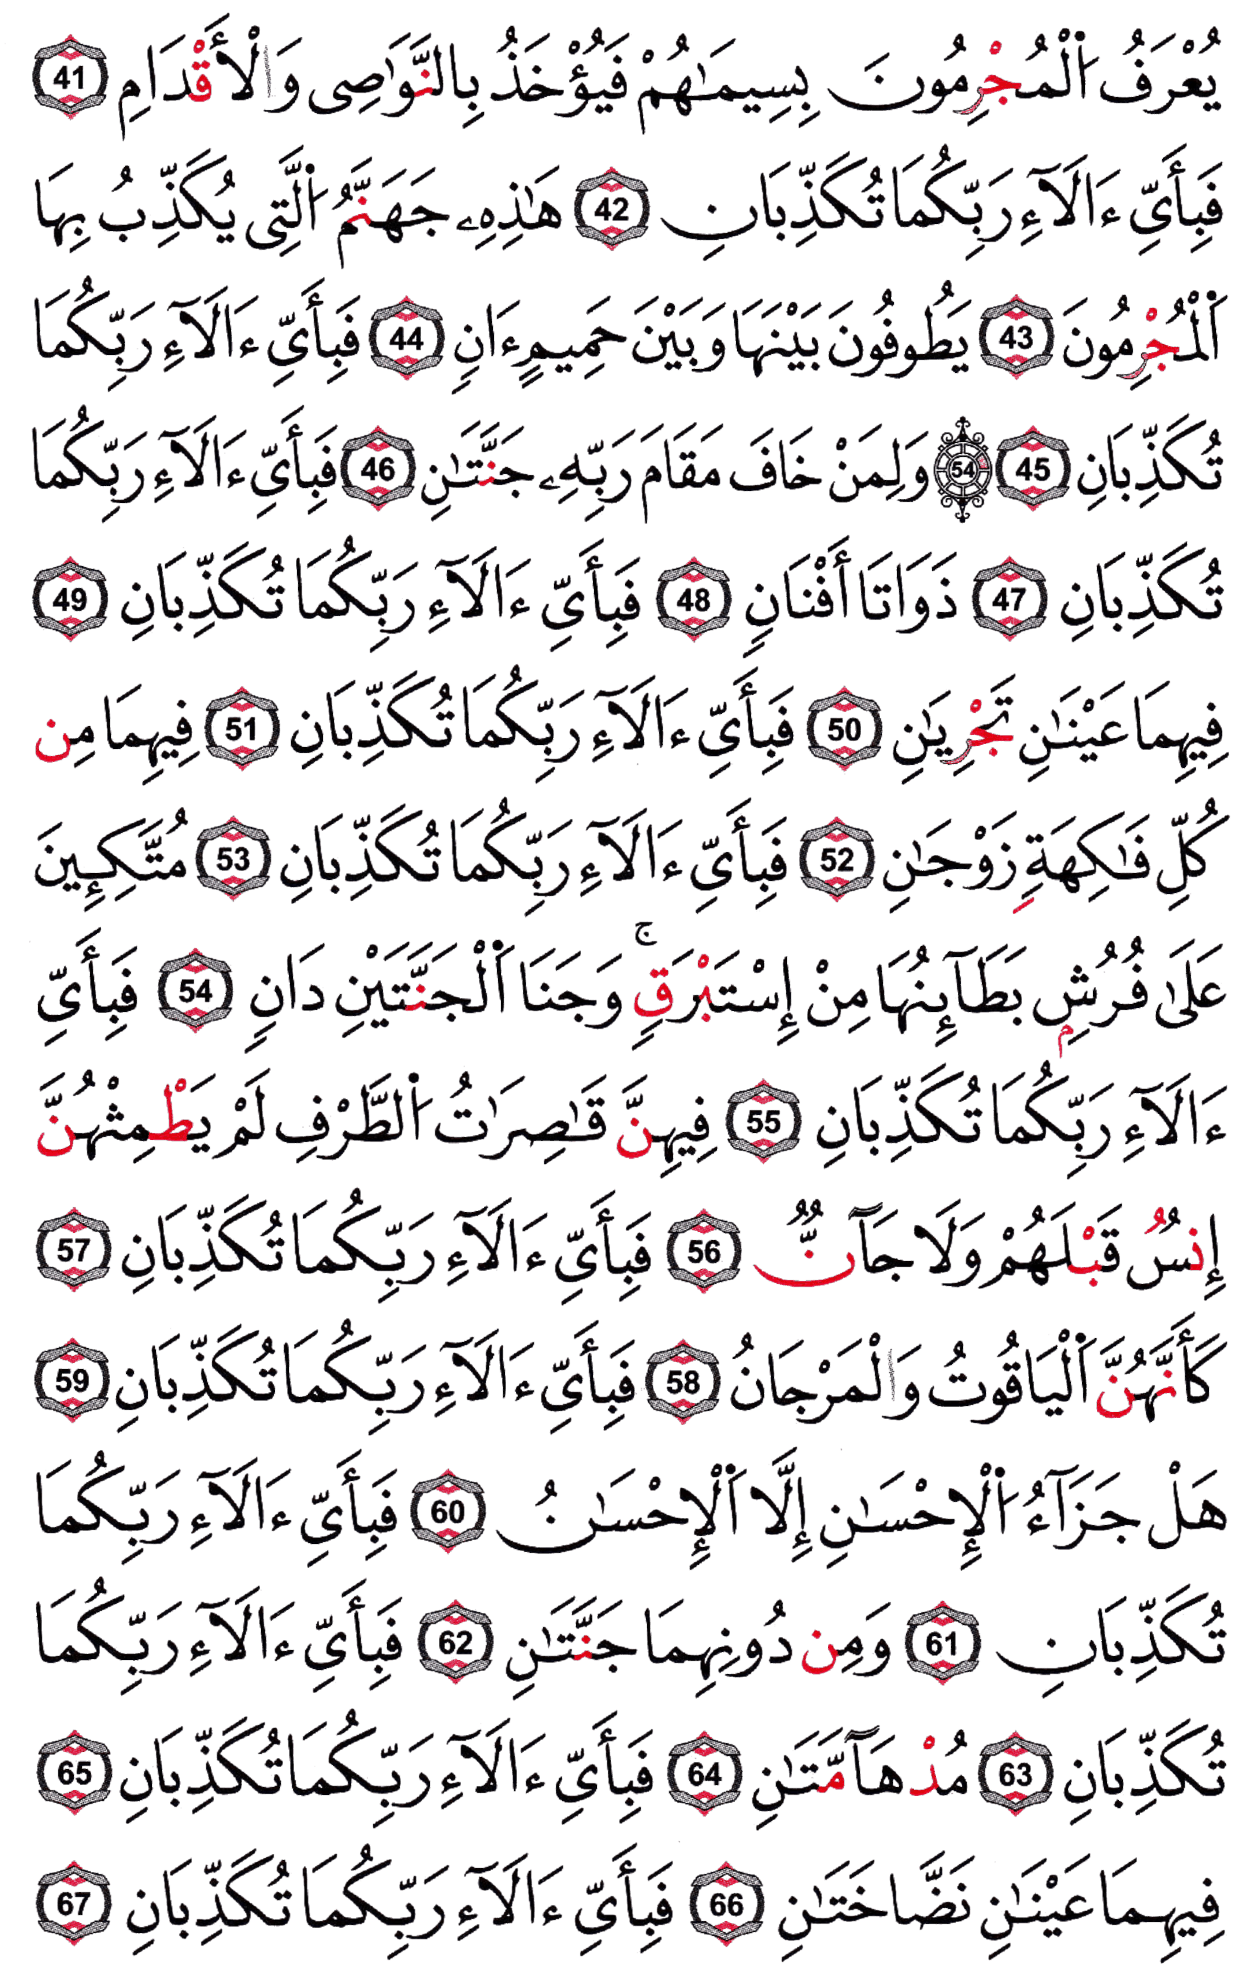 يُعْرَفُ ٱلْمُجْرِمُونَ بِسِيمَـٰهُمْ فَيُؤْخَذُ بِٱلنَّوَٰصِى وَٱلْأَقْدَامِ 41
فَبِأَىِّ ءَالَآءِ رَبِّكُمَا تُكَذِّبَانِ 42 هَـٰذِهِۦ جَهَنَّمُ ٱلَّتِى يُكَذِّبُ بِهَا
ٱلْمُجْرِمُونَ 43 يَطُوفُونَ بَيْنَهَا وَبَيْنَ حَمِيمٍ ءَانٍ 44 فَبِأَىِّ ءَالَآءِ رَبِّكُمَا
تُكَذِّبَانِ 45 54 وَلِمَنْ خَافَ مَقَامَ رَبِّهِۦ جَنَّتَـٰنِ 46 فَبِأَىِّ ءَالَآءِ رَبِّكُمَا
تُكَذِّبَانِ 47 ذَوَاتَا أَفْنَانٍ 48 فَبِأَىِّ ءَالَآءِ رَبِّكُمَا تُكَذِّبَانِ 49
فِيهِمَا عَيْنَـٰنِ تَجْرِيَـٰنِ 50 فَبِأَىِّ ءَالَآءِ رَبِّكُمَا تُكَذِّبَانِ 51 فِيهِمَا مِن
كُلِّ فَـٰكِهَةٍ زَوْجَـٰنِ 52 فَبِأَىِّ ءَالَآءِ رَبِّكُمَا تُكَذِّبَانِ 53 مُتَّكِـِٔينَ
عَلَىٰ فُرُشٍۭ بَطَآئِنُهَا مِنْ إِسْتَبْرَقٍ ۚ وَجَنَا ٱلْجَنَّتَيْنِ دَانٍ 54 فَبِأَىِّ
ءَالَآءِ رَبِّكُمَا تُكَذِّبَانِ 55 فِيهِنَّ قَـٰصِرَٰتُ ٱلطَّرْفِ لَمْ يَطْمِثْهُنَّ
إِنسٌ قَبْلَهُمْ وَلَا جَآنٌّ 56 فَبِأَىِّ ءَالَآءِ رَبِّكُمَا تُكَذِّبَانِ 57
كَأَنَّهُنَّ ٱلْيَاقُوتُ وَٱلْمَرْجَانُ 58 فَبِأَىِّ ءَالَآءِ رَبِّكُمَا تُكَذِّبَانِ 59
هَلْ جَزَآءُ ٱلْإِحْسَـٰنِ إِلَّا ٱلْإِحْسَـٰنُ 60 فَبِأَىِّ ءَالَآءِ رَبِّكُمَا
تُكَذِّبَانِ 61 وَمِن دُونِهِمَا جَنَّتَـٰنِ 62 فَبِأَىِّ ءَالَآءِ رَبِّكُمَا
تُكَذِّبَانِ 63 مُدْهَآمَّتَـٰنِ 64 فَبِأَىِّ ءَالَآءِ رَبِّكُمَا تُكَذِّبَانِ 65
فِيهِمَا عَيْنَـٰنِ نَضَّاخَتَـٰنِ 66 فَبِأَىِّ ءَالَآءِ رَبِّكُمَا تُكَذِّبَانِ 67